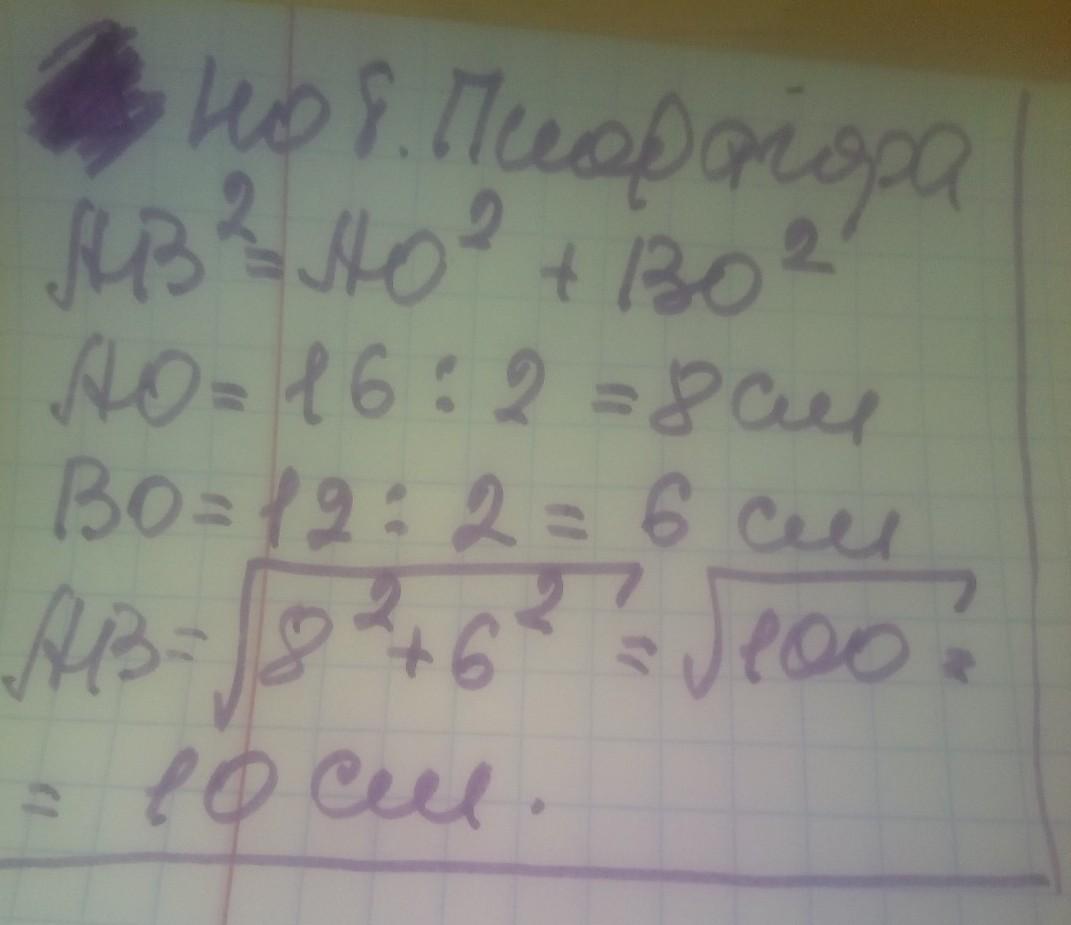 По т. Піфагора
AB² = AO² + BO²
AO = 16 : 2 = 8 см
BO = 12 : 2 = 6 см
AB = √8² + 6² = √100 =
= 10 см.